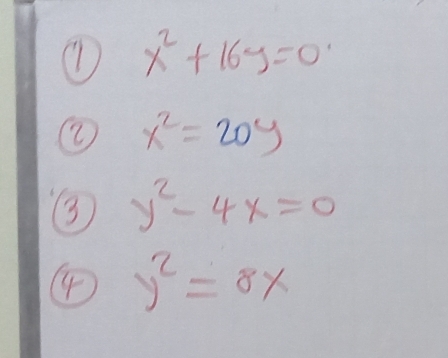 ① x² + 16y = 0
② x² = 20y
③ y² - 4x = 0
④ y² = 8x